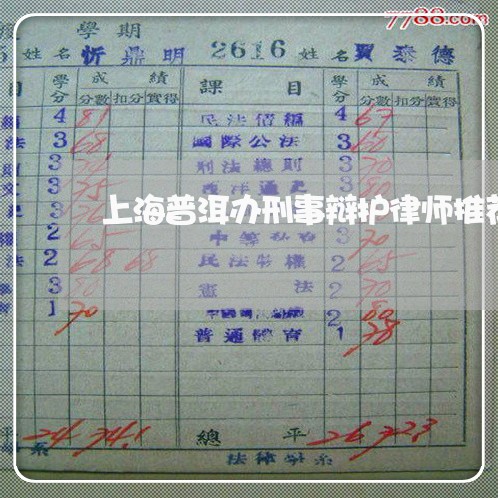 7788.com
學期
姓名 忻鼎明 2616 姓名 賈泰德
目 學分 成績 課目 學分 成績
分數 扣分 實得 分數 扣分 實得
4 81 民法債編 4 67
法 3 68 國際公法 3 60
3 刑法總則 3 70
文 3 75 西洋通史 3 80
3
上海普洱办刑事辩护律师推荐
2 65 3 70
法 2 68 68 民法物權 2 65
3 80 憲法 2 70
1 70 2 80
普通體育 1 78
平 24 74.1 總平 26 72.3
系 法律學系